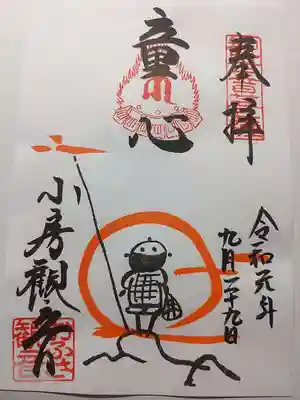 奉拝
童心
小房観音
令和元年
九月二十九日